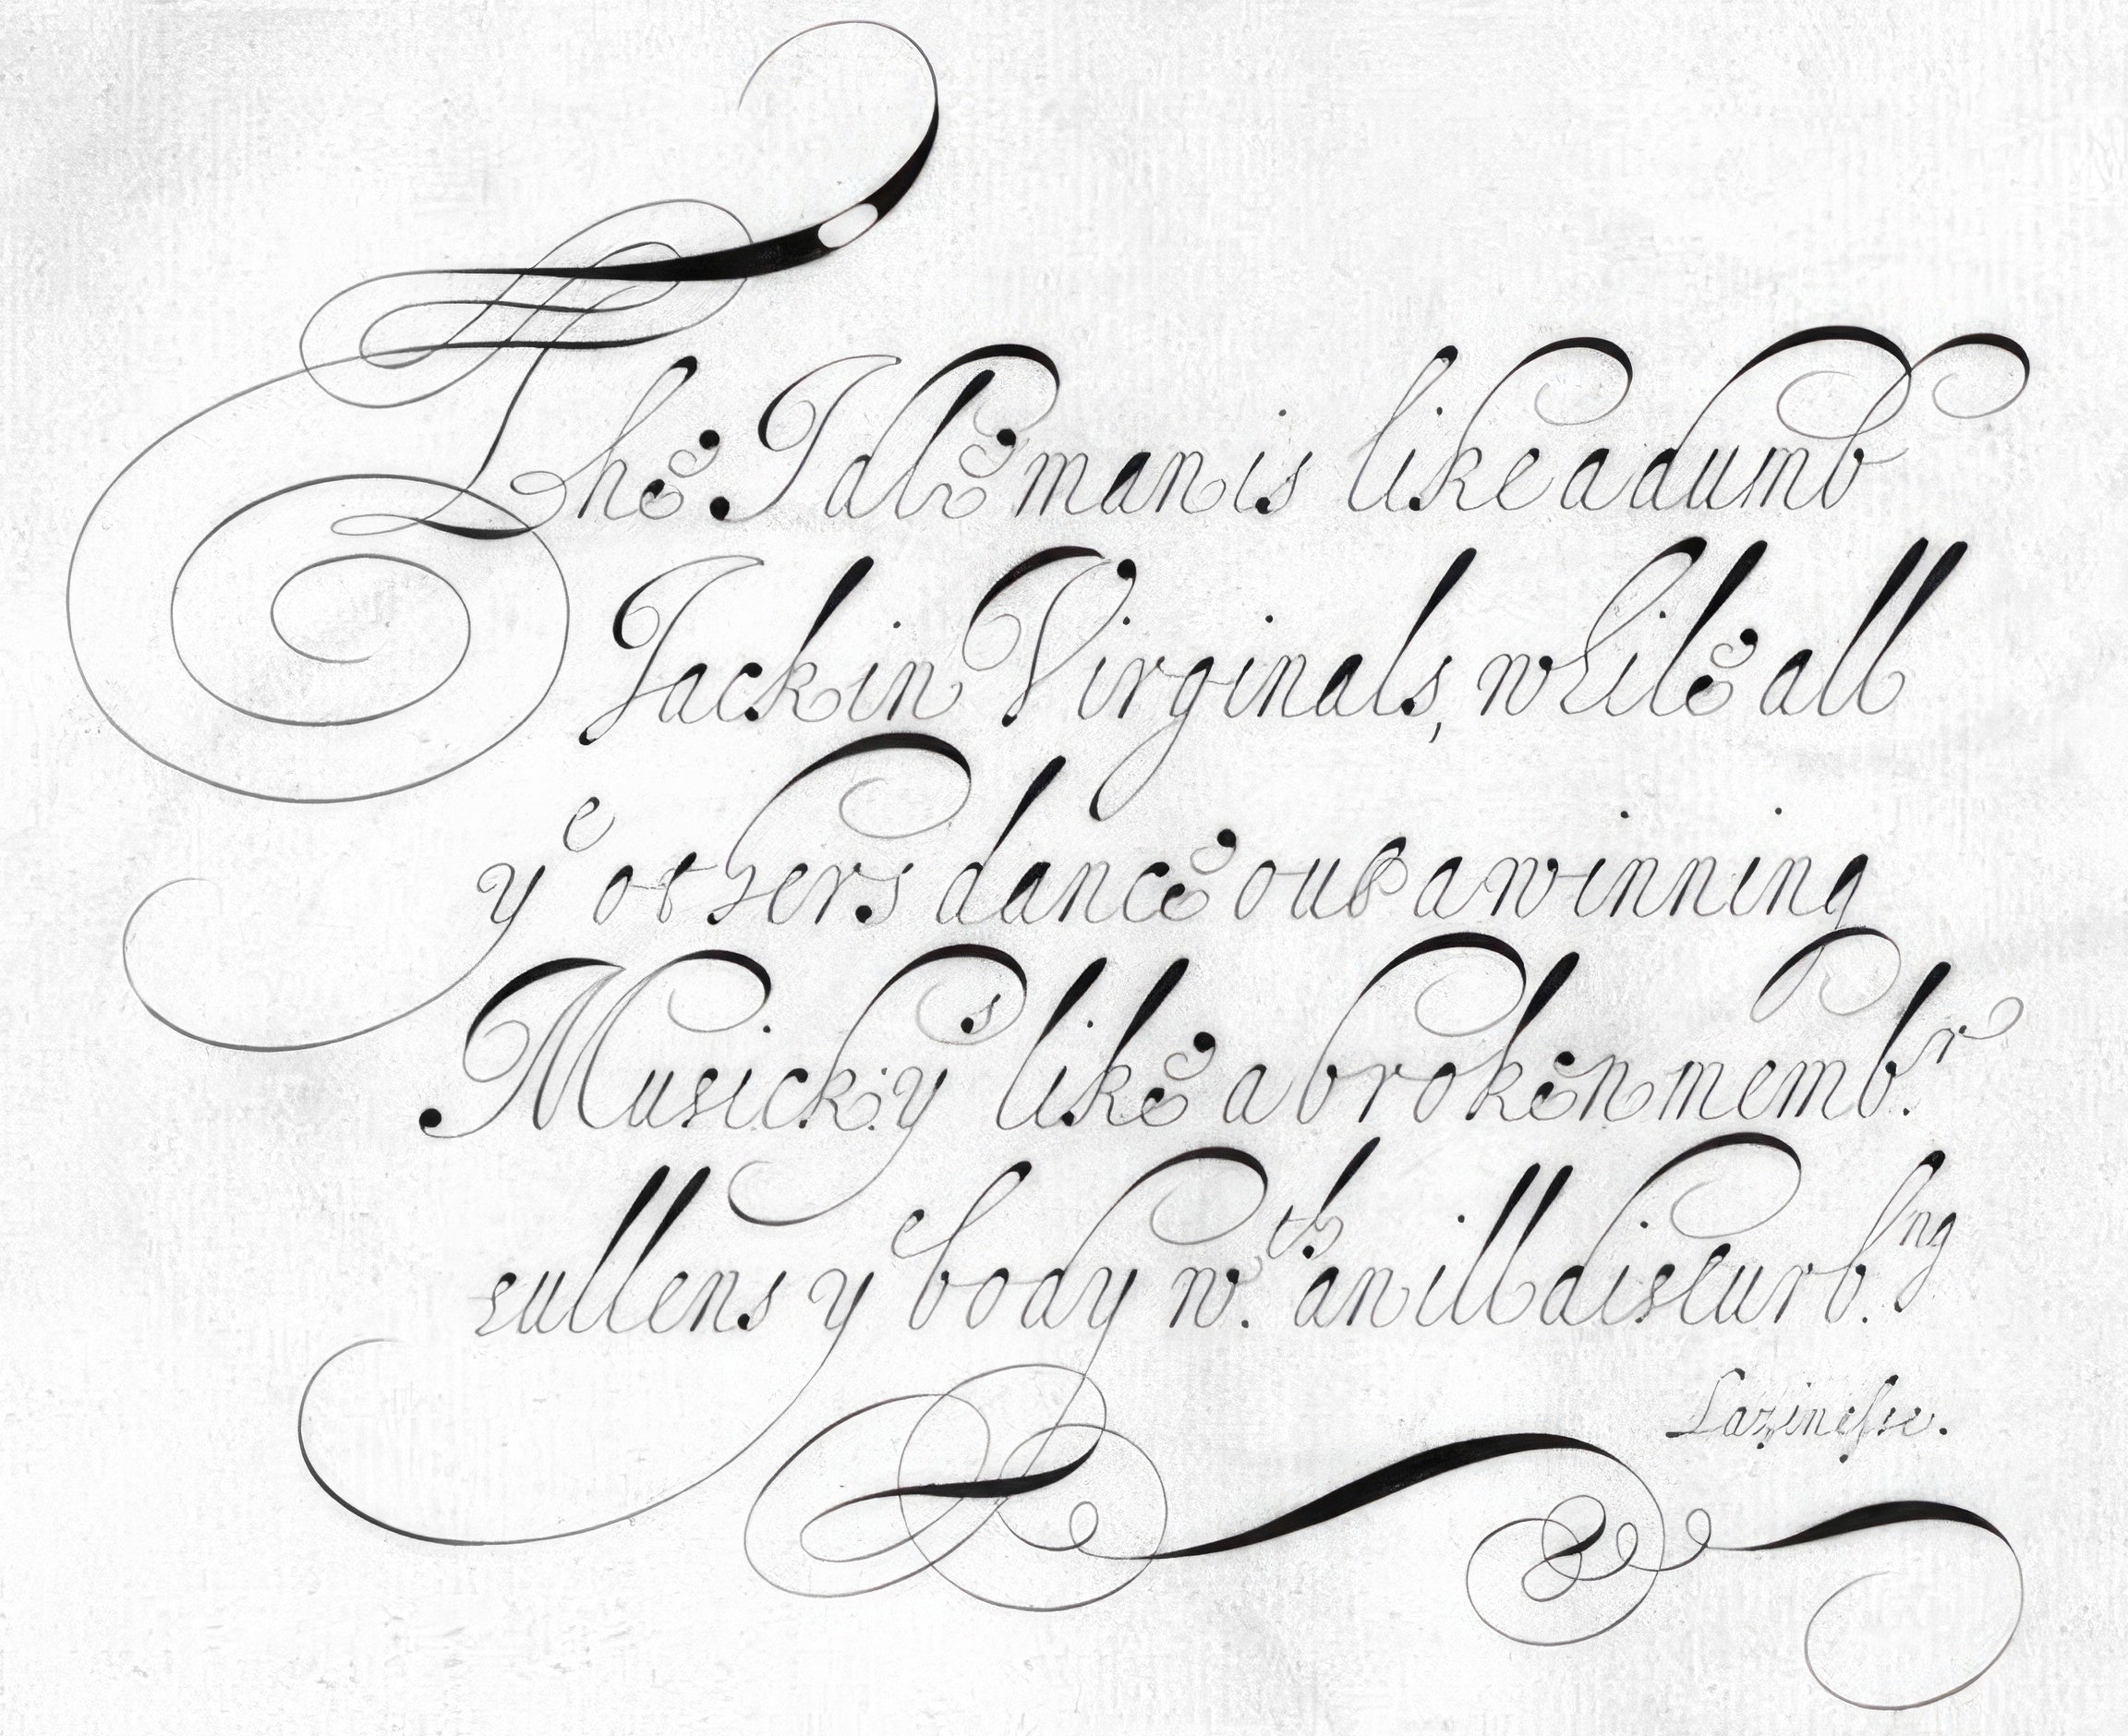 The Idle man is like a dumb
Jack in Virginals, while all
yᵉ others dance out a winning
Musick: yˢ like a broken memb.ʳ
sullens yᵉ body w.ᵗʰ an ill disturb.ⁿᵍ
Lazinesse.